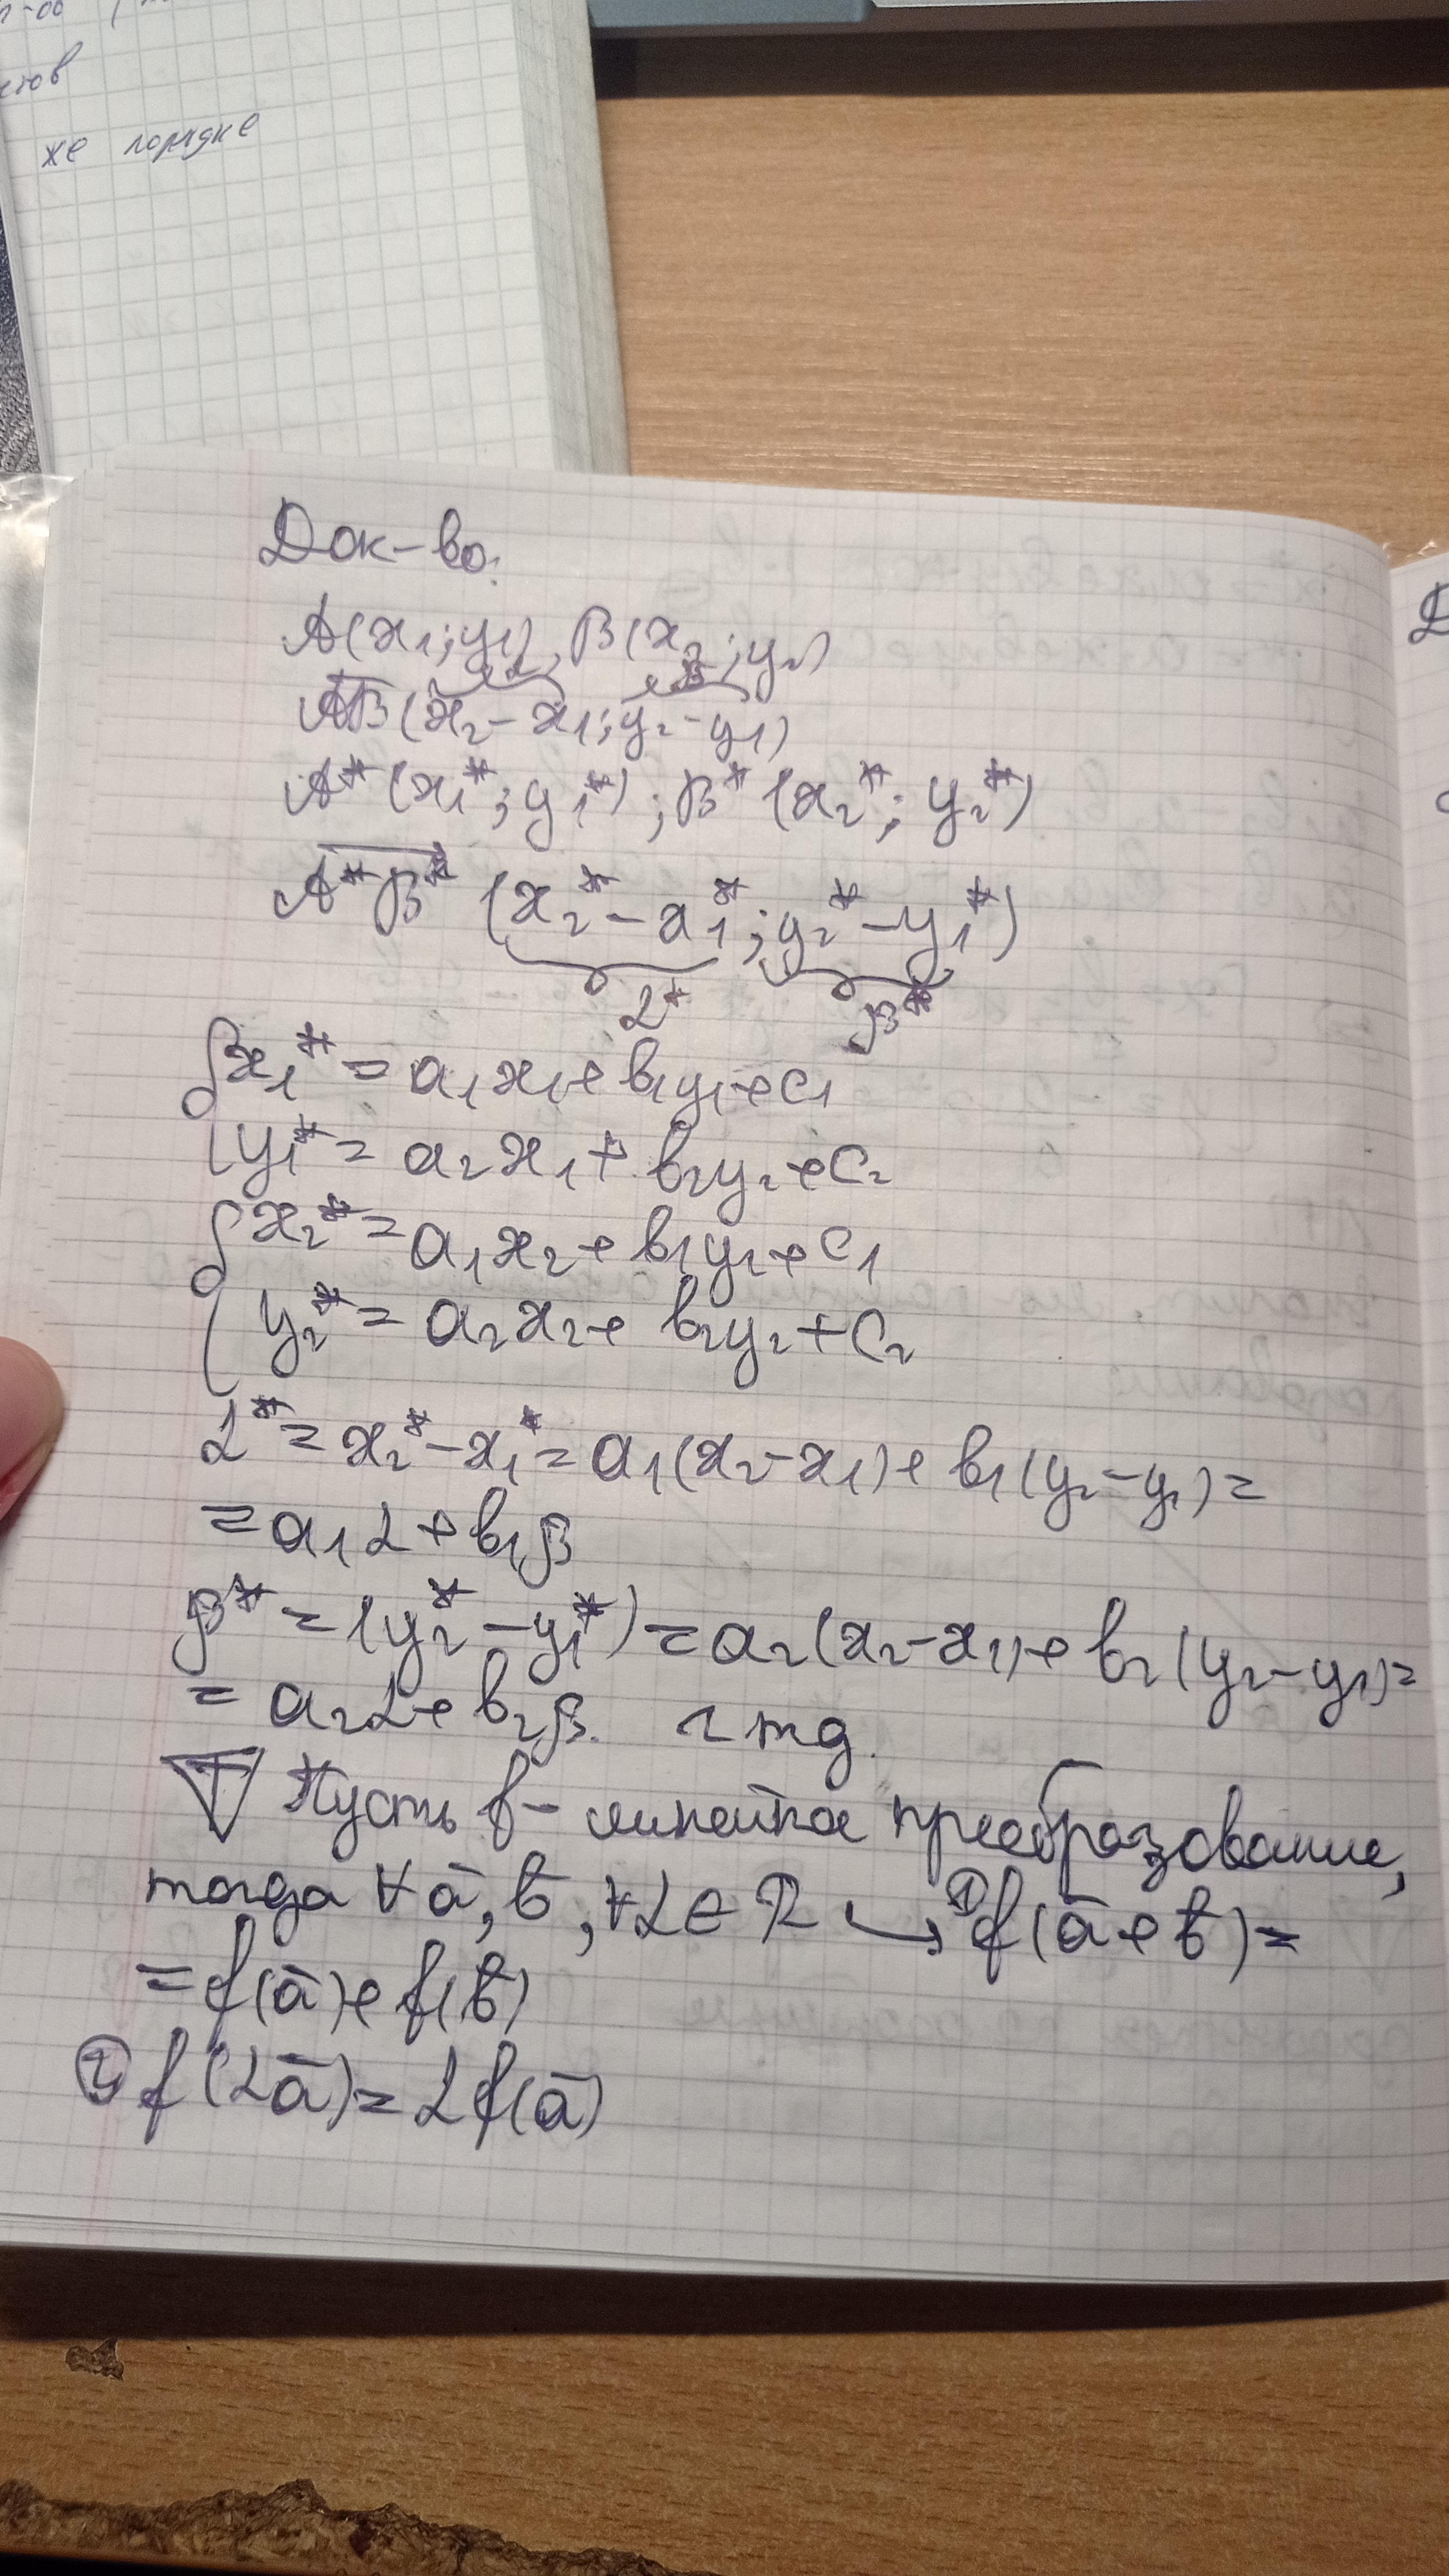 стов
же порядке
Док-во:
A(x₁; y₁), B(x₂; y₂)
α β
A̅B̅(x₂ - x₁; y₂ - y₁)
A*(x₁*; y₁*); B*(x₂*; y₂*)
A̅*̅B̅*̅ (x₂* - x₁*; y₂* - y₁*)
α* β*
{ x₁* = a₁x₁ + b₁y₁ + c₁
y₁* = a₂x₁ + b₂y₂ + c₂
{ x₂* = a₁x₂ + b₁y₂ + c₁
y₂* = a₂x₂ + b₂y₂ + c₂
α* = x₂* - x₁* = a₁(x₂ - x₁) + b₁(y₂ - y₁) =
= a₁α + b₁β
β* = (y₂* - y₁*) = a₂(x₂ - x₁) + b₂(y₂ - y₁) =
= a₂α + b₂β. чтд.
T Пусть f - линейное преобразование,
тогда ∀ a̅, b̅, ∀α ∈ R ↪ ① f(a̅ + b̅) =
= f(a̅) + f(b̅)
② f(αa̅) = αf(a̅)